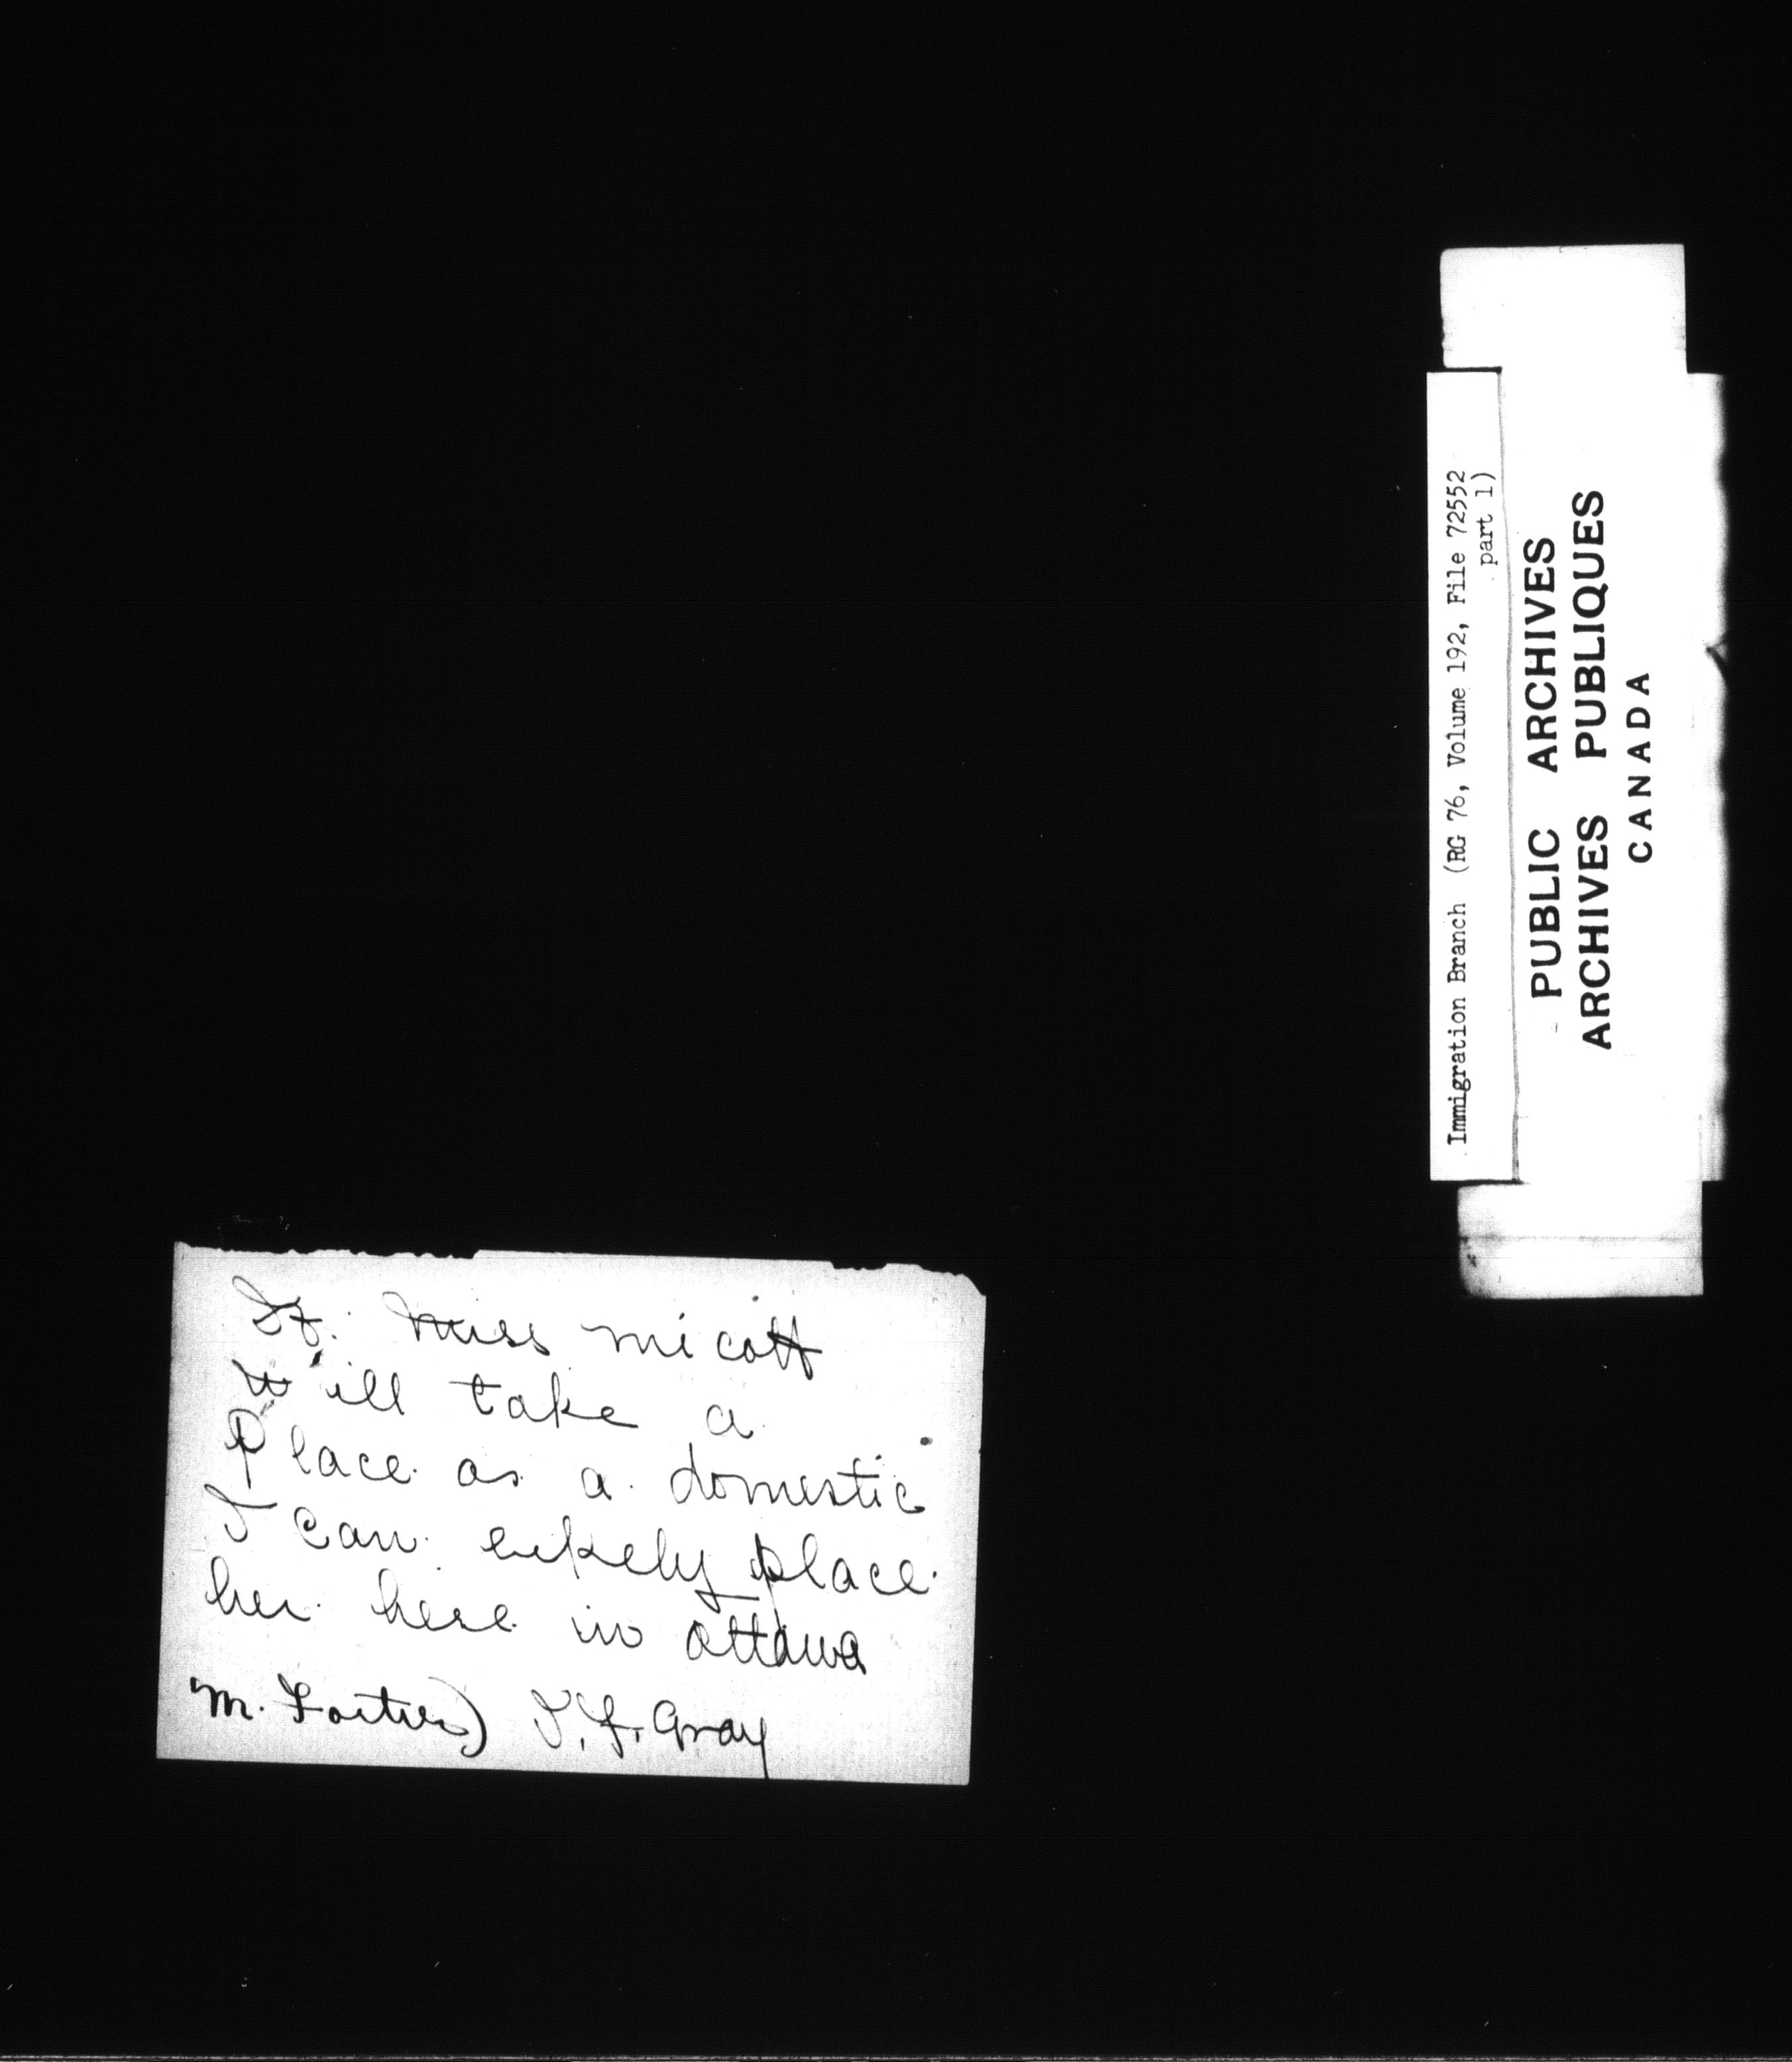 If Miss Micott
will take a
Place as a domestic
I can likely place
her here in Ottawa
M. Fortier) J. F. Gray
Immigration Branch (RG 76, Volume 192, File 72552
part 1)
PUBLIC ARCHIVES
ARCHIVES PUBLIQUES
CANADA